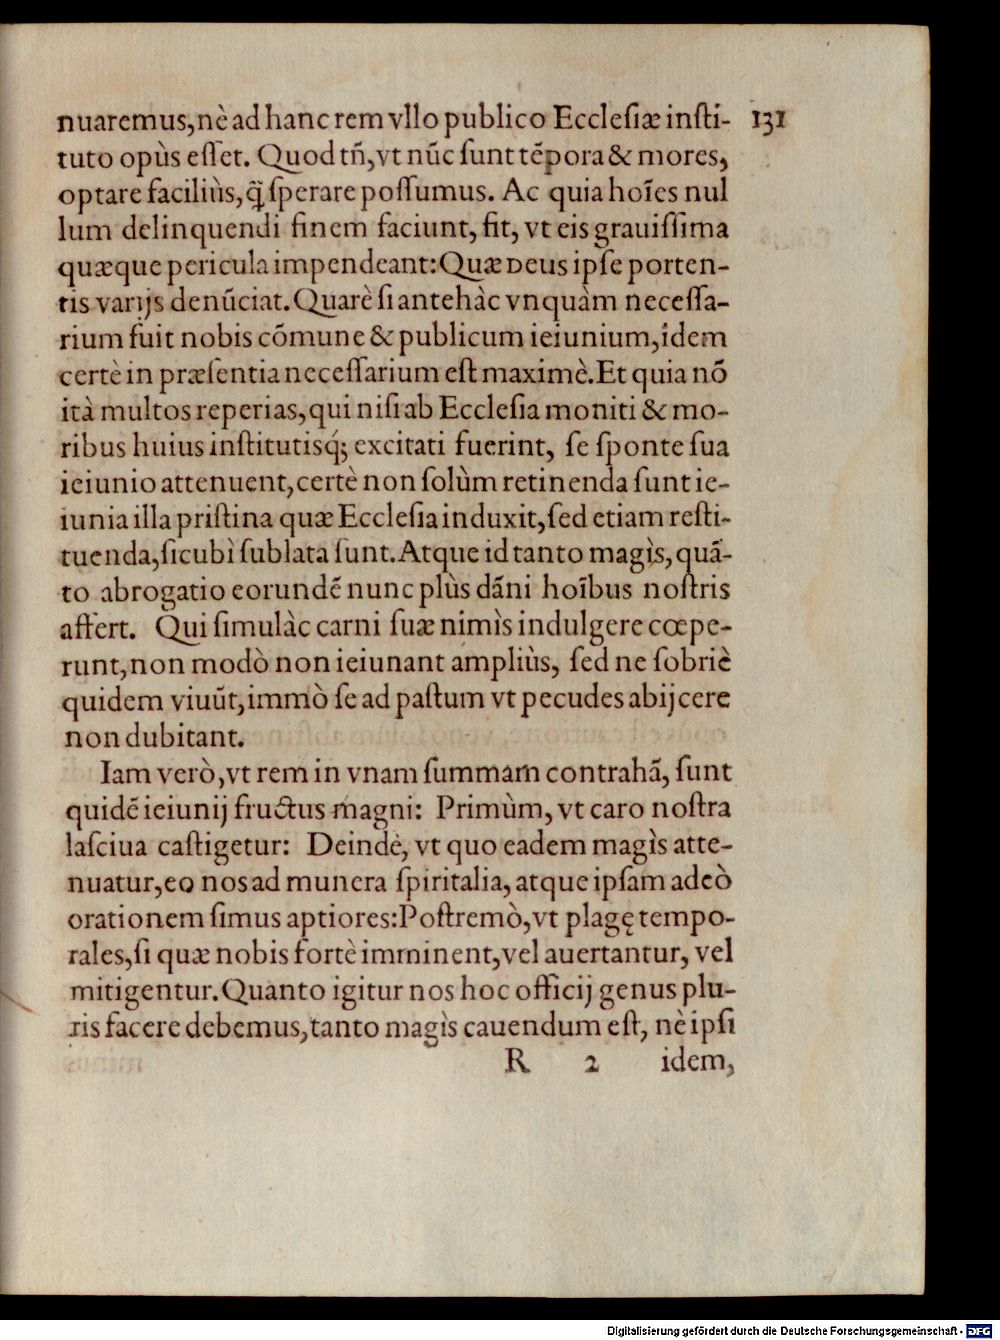 nuaremus,nè ad hanc rem vllo publico Ecclesiæ insti- 131
tuto opùs esset. Quod tñ,vt nūc sunt tēpora & mores,
optare faciliùs,q̃ sperare possumus. Ac quia hoīes nul
lum delinquendi finem faciunt, fit, vt eis grauissima
quæque pericula impendeant:Quæ ᴅeus ipse porten-
tis varijs denūciat. Quarè si antehàc vnquàm necessa-
rium fuit nobis cōmune & publicum ieiunium,idem
certè in præsentia necessarium est maximè.Et quia nō
ità multos reperias,qui nisi ab Ecclesia moniti & mo-
ribus huius institutisq́; excitati fuerint, se sponte sua
ieiunio attenuent,certè non solùm retinenda sunt ie-
iunia illa pristina quæ Ecclesia induxit,sed etiam resti-
tuenda,sicubì sublata sunt.Atque id tanto magìs,quā-
to abrogatio eorundē nunc plùs dāni hoībus nostris
affert. Qui simulàc carni suæ nimìs indulgere cœpe-
runt,non modò non ieiunant ampliùs, sed ne sobriè
quidem viuūt,immò se ad pastum vt pecudes abijcere
non dubitant.
Iam verò,vt rem in vnam summam contrahā, sunt
quidē ieiunij fructus magni: Primùm, vt caro nostra
lasciua castigetur: Deindè, vt quo eadem magìs atte-
nuatur,eo nos ad munera spiritalia, atque ipsam adeò
orationem simus aptiores:Postremò,vt plagę tempo-
rales,si quæ nobis fortè imminent,vel auertantur, vel
mitigentur.Quanto igitur nos hoc officij genus plu-
ris facere debemus,tanto magìs cauendum est, nè ipsi
R 2 idem,
Digitalisierung gefördert durch die Deutsche Forschungsgemeinschaft - DFG